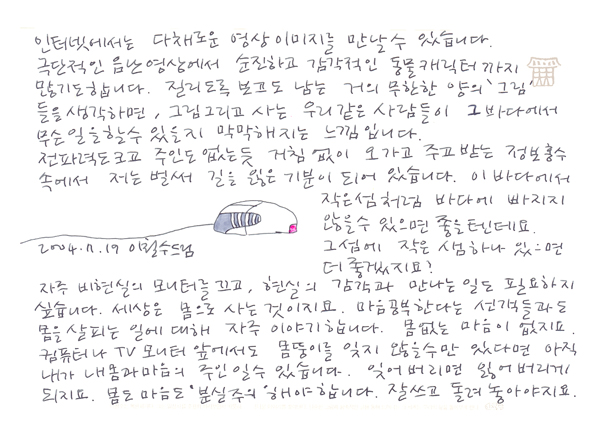 인터넷에서는 다채로운 영상이미지를 만날 수 있습니다.
극단적인 음란영상에서 순진하고 감각적인 동물캐릭터까지
많기도 합니다. 질리도록 보고도 남는 거의 무한한 양의 그림
들을 생각하면, 그림그리고 사는 우리같은 사람들이 그 바다에서
무슨 일을 할 수 있을지 막막해지는 느낌입니다.
전파력도 크고 주인도 없는듯 거침없이 오가고 주고받는 정보홍수
속에서 저는 벌써 길을 잃은 기분이 되어 있습니다. 이 바다에서
작은섬처럼 바다에 빠지지
않을 수 있으면 좋을텐데요.
그섬에 작은 샘하나 있으면
더 좋겠지요?
2004.11.19 이철수드림
자주 비현실의 모니터를 끄고, 현실의 감각과 만나는 일도 필요하지
싶습니다. 세상은 몸으로 사는 것이지요. 마음공부한다는 선객들과도
몸을 살피는 일에 대해 자주 이야기합니다. 몸없는 마음이 없지요.
컴퓨터나 TV 모니터 앞에서도 몸뚱이를 잊지 않을 수만 있다면 아직
내가 내몸과 마음의 주인일 수 있습니다. 잊어버리면 잃어버리게
되지요. 몸도 마음도 '분실주의' 해야 합니다. 잘쓰고 돌려 놓아야지요.